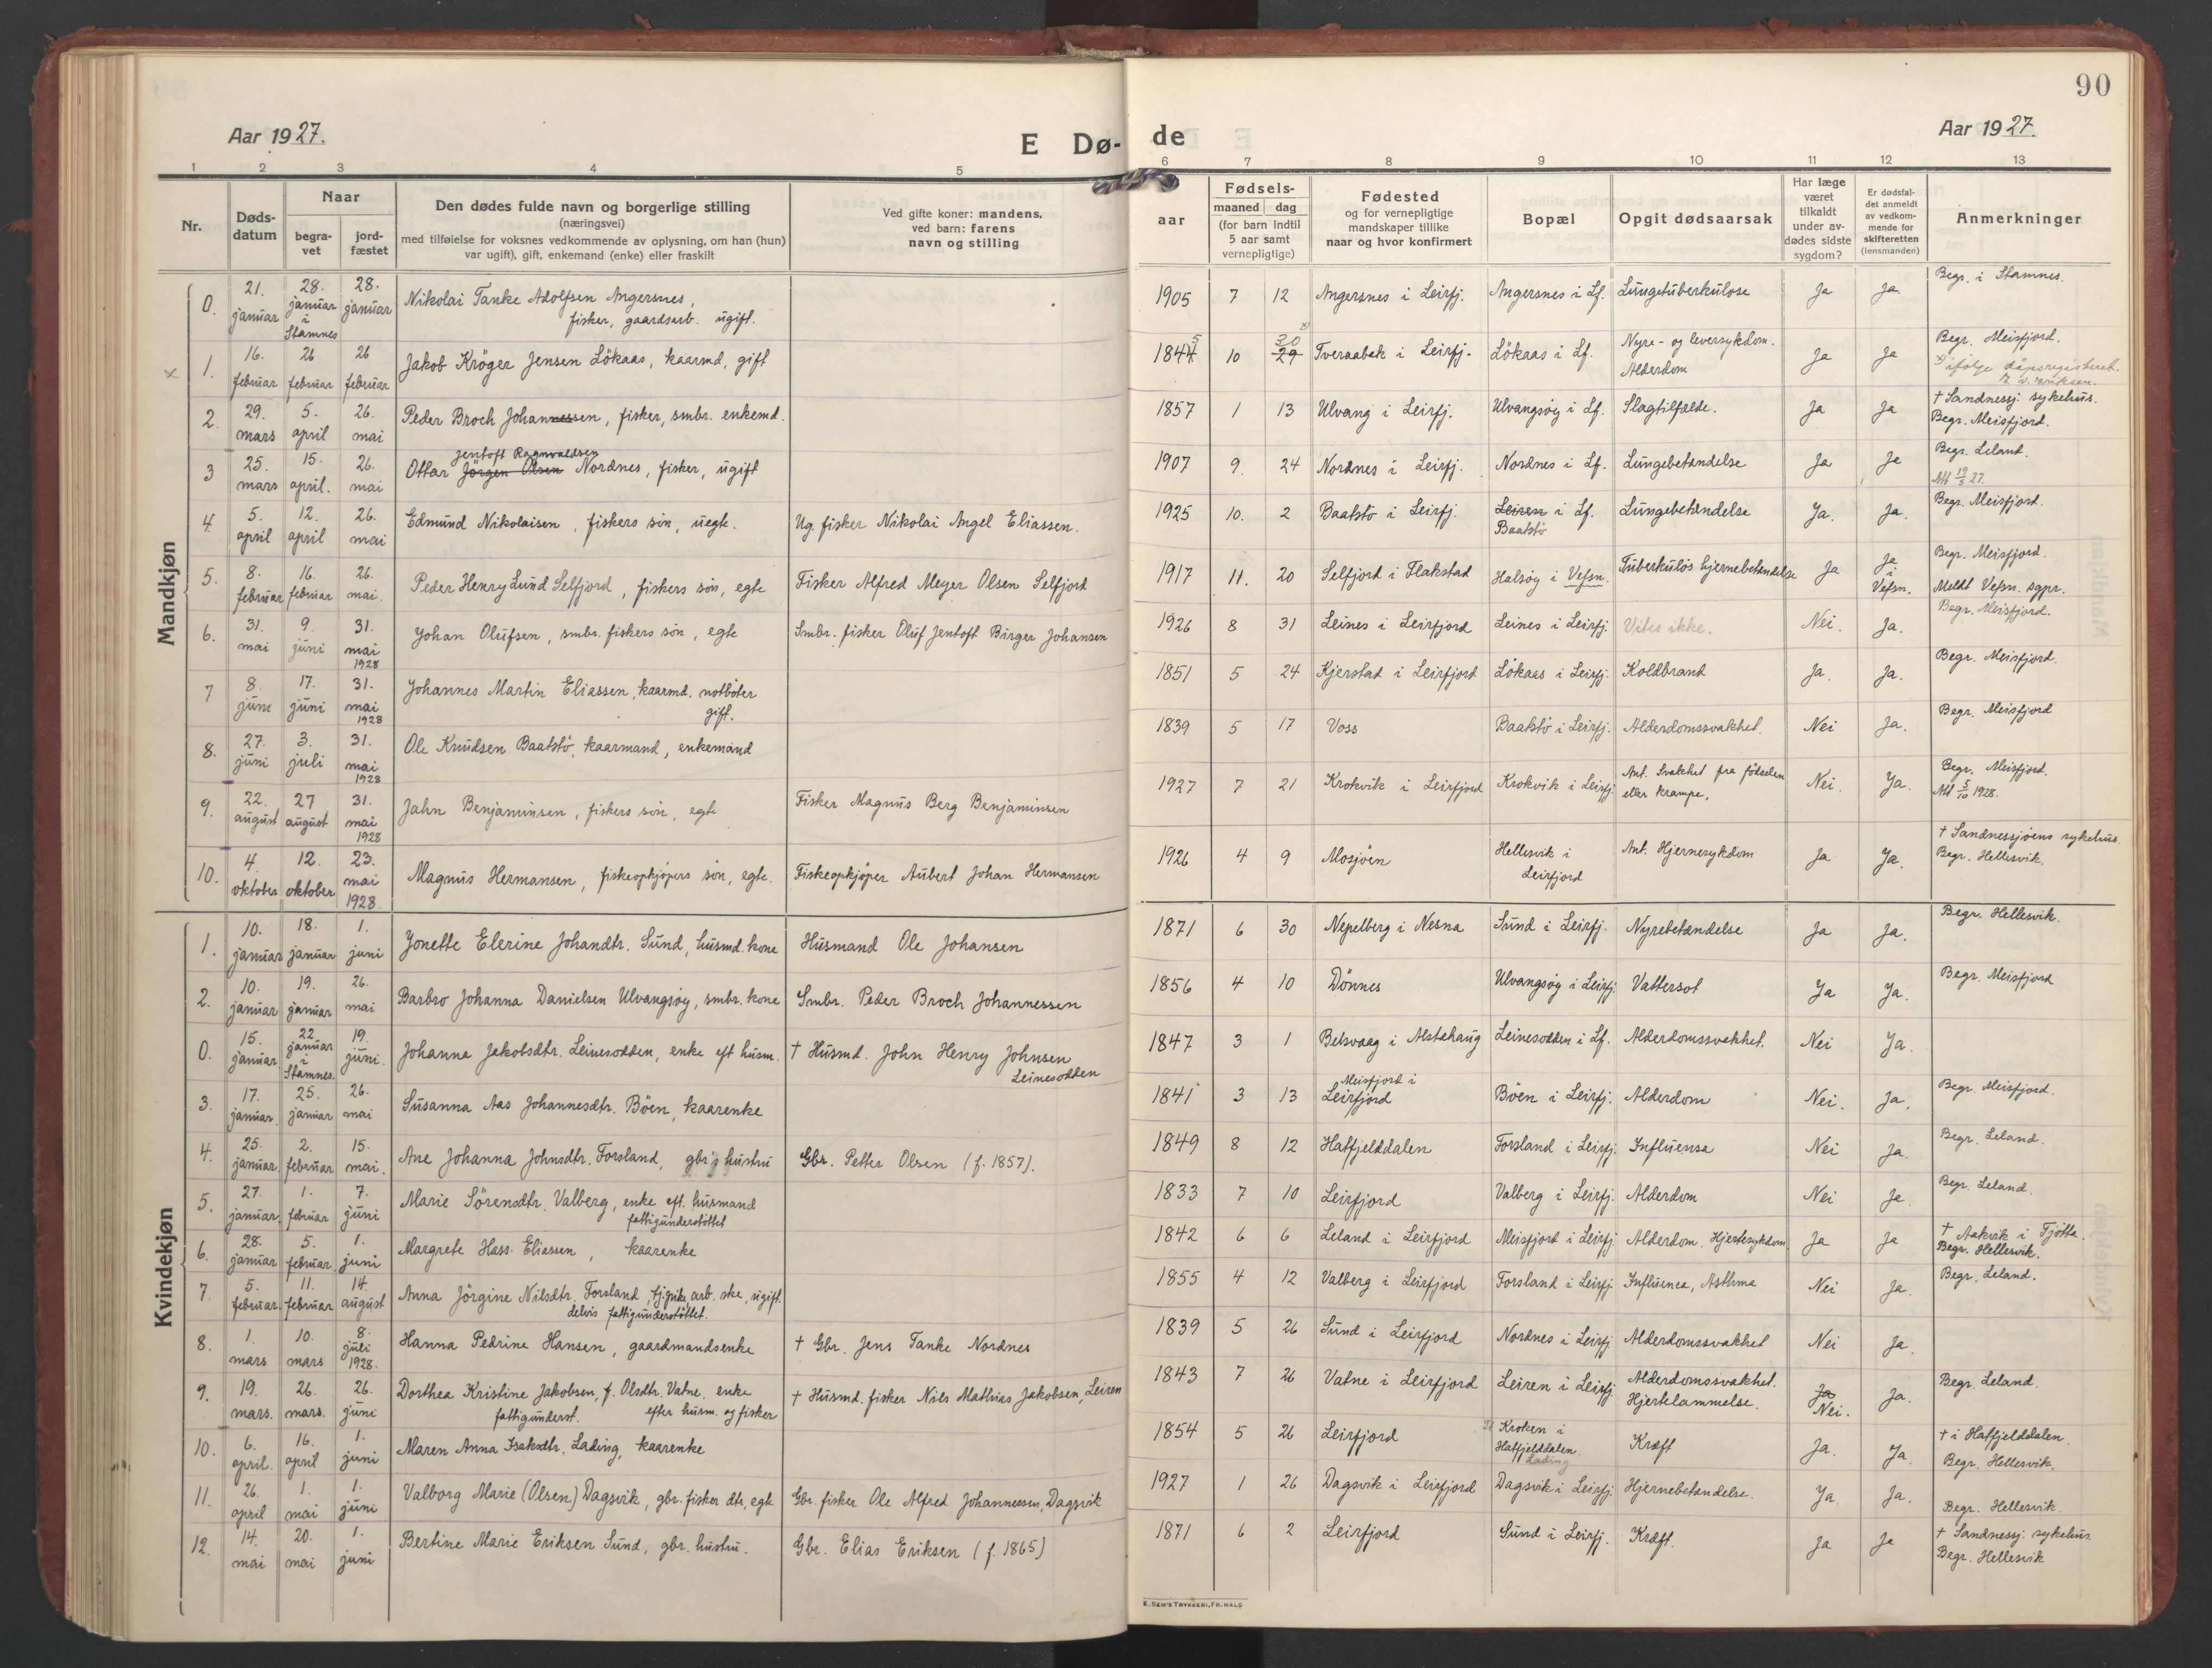 90
Aar 1927.
E Dø- de
Aar 1927.
1 2 3 4 5 6 7 8 9 10 11 12 13
Nr.
Døds-datum
Naar
begra-vet
jord-fæstet
Den dødes fulde navn og borgerlige stilling
(næringsvei)
med tilføielse for voksnes vedkommende av oplysning, om han (hun)
var ugift, gift, enkemand (enke) eller fraskilt
Ved gifte koner: mandens,
ved barn: farens
navn og stilling
Fødsels-
aar
maaned dag
(for barn indtil
5 aar samt
vernepligtige)
Fødested
og for vernepligtige
mandskaper tillike
naar og hvor konfirmert
Bopæl
Opgit dødsaarsak
Har læge
været
tilkaldt
under av-
dødes sidste
sygdom?
Er dødsfal-
det anmeldt
av vedkom-
mende for
skifteretten
(lensmanden)
Anmerkninger
Mandkjøn
0. 21. januar 28. januar i Stamnes 28. januar Nikolai Tanke Adolfsen Angersnes, fisker, gaardsarb. ugift. 1905 7 12 Angersnes i Leirfj. Angersnes i Lf. Lungetuberkulose Ja Ja. Begr. i Stamnes.
x 1. 16. februar 26 februar 26 februar Jakob Kröger Jensen Lökaas, kaarmd, gift 1844 5 10 29 30 x) Tveraabek i Leirfj. Lökaas i Lf. Nyre- og leversykdom. Alderdom Ja Ja Begr. Meisfjord. x) ifølge dåpsregisteret.
2. 29. mars 5. april 26. mai Peder Broch Johannessen, fisker, smbr. enkemd. 1857 1 13 Ulvang i Leirfj. Ulvangsöy i Lf. Slagtilfælde. Ja Ja † Sandnessj. sykehus. Begr. Meisfjord.
3 25. mars 15. april. 26. mai Ottar Jörgen Olsen Jentoft Ragnvaldsen Nordnes, fisker, ugift 1907 9. 24 Nordnes i Leirfj. Nordnes i Lf. Lungebetændelse Ja Ja Begr. Leland. Att 19/5 27.
4. 5. april 12. april 26. mai Edmund Nikolaisen, fiskers sön, uegte. Ug. fisker Nikolai Angel Eliassen. 1925 10. 2 Baatstö i Leirfj. Leiren i Lf. Baatstö Lungebetændelse Ja. Ja. Begr. Meisfjord.
5. 8. februar 16. februar 26. mai. Peder Henry Lund Selfjord, fiskers sön, egte Fisker Alfred Meyer Olsen Selfjord 1917 11. 20 Selfjord i Flakstad Halsöy i Vefsn. Tuberkulös hjernebetændelse Ja Ja i Vefsn. Begr. Meisfjord. Meldt Vefsn. sgpr.
6. 31. mai 9. juni 31. mai 1928 Johan Olufsen, smbr. fiskers sön, egte Smbr. fisker Oluf Jentoft Birger Johansen 1926 8 31 Leines i Leirfjord Leines i Leirfj. Vites ikke. Nei. Ja. Begr. Meisfjord.
7 8. juni 17. juni 31. mai 1928 Johannes Martin Eliassen, kaarmd. notböter gift. 1851 5 24 Kjerstad i Leirfjord Lökaas i Leirfj. Koldbrand Ja. Ja. Begr. Meisfjord.
8. 27. juni 3. juli 31. mai 1928 Ole Knudsen Baatstö, kaarmand, enkemand 1839 5 17 Voss Baatstö i Leirfj. Alderdomssvakhet. Nei Ja. Begr. Meisfjord
9. 22. august 27 august 31. mai 1928 Jahn Benjaminsen, fiskers sön, egte Fisker Magnus Berg Benjaminsen 1927 7 21 Krokvik i Leirfjord Krokvik i Leirfj. Ant. Svakhet fra födselen eller krampe. Nei. Ja. Begr. Meisfjord. Att 5/10 1928.
10. 4. oktober 12. oktober 23. mai 1928 Magnus Hermansen, fiskeopkjöpers sön, egte. Fiskeopkjöper Aubert Johan Hermansen 1926 4 9 Mosjöen Hellesvik i Leirfjord Ant. Hjernesykdom Ja Ja. † Sandnessjöens sykehus. Begr. Hellesvik.
Kvindekjøn
1. 10. januar 18. januar 1. juni Jonette Elerine Johandtr. Sund, husmd. kone Husmand Ole Johansen 1871 6 30 Nepelberg i Nesna Sund i Leirfj. Nyrebetændelse Ja Ja. Begr. Hellesvik.
2. 10. januar 19. januar 26. mai Barbro Johanna Danielsen Ulvangsöy, smbr. kone Smbr. Peder Broch Johannessen 1856 4 10 Dönnes Ulvangsöy i Leirfj. Vattersot Ja Ja. Begr. Meisfjord
0. 15. januar 22 januar i Stamnes. 19. juni. Johanna Jakobsdtr. Leinesodden, enke eft husm. † Husmd. John Henry Johnsen Leinesodden 1847 3 1 Belsvaag i Alstahaug Leinesodden i Lf. Alderdomssvakhet. Nei Ja.
3. 17. januar. 25. januar 26. mai Susanna Aas Johannesdtr. Böen, kaarenke 1841 3 13 Meisfjord i Leirfjord Böen i Leirfj. Alderdom Nei. Ja. Begr. Meisfjord.
4. 25. januar. 2. februar 15. mai. Ane Johanna Johnsdtr. Forsland, gbr's hustru Gbr. Petter Olsen (f. 1857). 1849 8 12 Hatfjelddalen Forsland i Leirfj. Influensa Nei Ja. Begr. Leland.
5. 27. januar. 1. februar 7. juni Marie Sörensdtr. Valberg, enke eft. husmand fattigunderstöttet 1833 7 10 Leirfjord Valberg i Leirfj. Alderdom Nei Ja Begr. Leland.
6. 28. januar 5. februar. 1. juni Margrete Hass Eliassen, kaarenke 1842 6 6 Leland i Leirfjord Meisfjord i Leirfj. Alderdom. Hjertesykdom. Ja Ja † Aakvik i Tjötta. Begr. Hellesvik.
7. 5. februar. 11. februar 14. august Anna Jörgine Nilsdtr. Forsland, arb. ske, ugift. delvis fattigunderstöttet. 1855 4 12 Valberg i Leirfjord Forsland i Leirfj. Influensa, Asthma Nei Ja. Begr. Leland.
8. 1. mars 10. mars 8. juli 1928. Hanna Pedrine Hansen, gaardmandsenke † Gbr. Jens Tanke Nordnes 1839 5 26 Sund i Leirfjord Nordnes i Leirfj. Alderdomssvakhet Nei Ja.
9. 19. mars. 26. mars. 26. juni Dorthea Kristine Jakobsen, f. Olsdtr. Vatne, enke efter husm. og fisker fattigunderst. † Husmd. fisker Nils Mathias Jakobsen, Leiren 1843 7 26 Vatne i Leirfjord Leiren i Leirfj. Alderdomssvakhet. Hjertelammelse. Ja Nei. Ja. Begr. Leland.
10. 6. april. 16. april 1. juni Maren Anna Isaksdtr. Lading, kaarenke 1854 5 26 Leirfjord Kroken i Hatfjelddalen. Lading Kræft Ja. Ja. † i Hatfjelddalen. Begr. Hellesvik.
11. 26. april 1. mai 1. juni Valborg Marie (Olsen) Dagsvik, gbr. fisker dtr, egte Gbr. fisker Ole Alfred Johannessen, Dagsvik 1927 1 26 Dagsvik i Leirfjord Dagsvik i Leirfj. Hjernebetændelse. Ja. Ja. Begr. Hellesvik
12. 14. mai 20. mai 1. juni Bertine Marie Eriksen Sund, gbr. hustru. Gbr. Elias Eriksen (f. 1865) 1871 6 2 Leirfjord Sund i Leirfj. Kræft. Ja Ja † Sandnessj. sykehus. Begr. Hellesvik
E. SEM'S TRYKKERI, FR.HALD